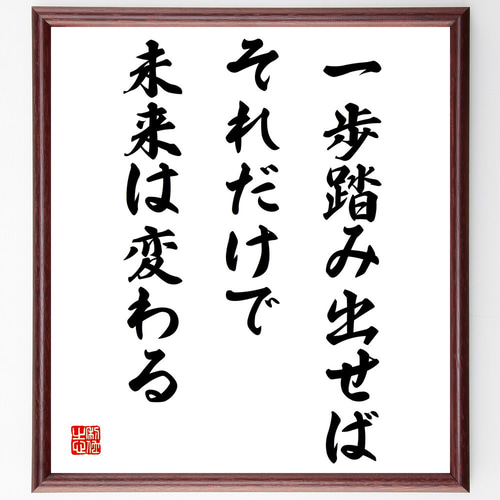 一歩踏み出せば
それだけで
未来は変わる